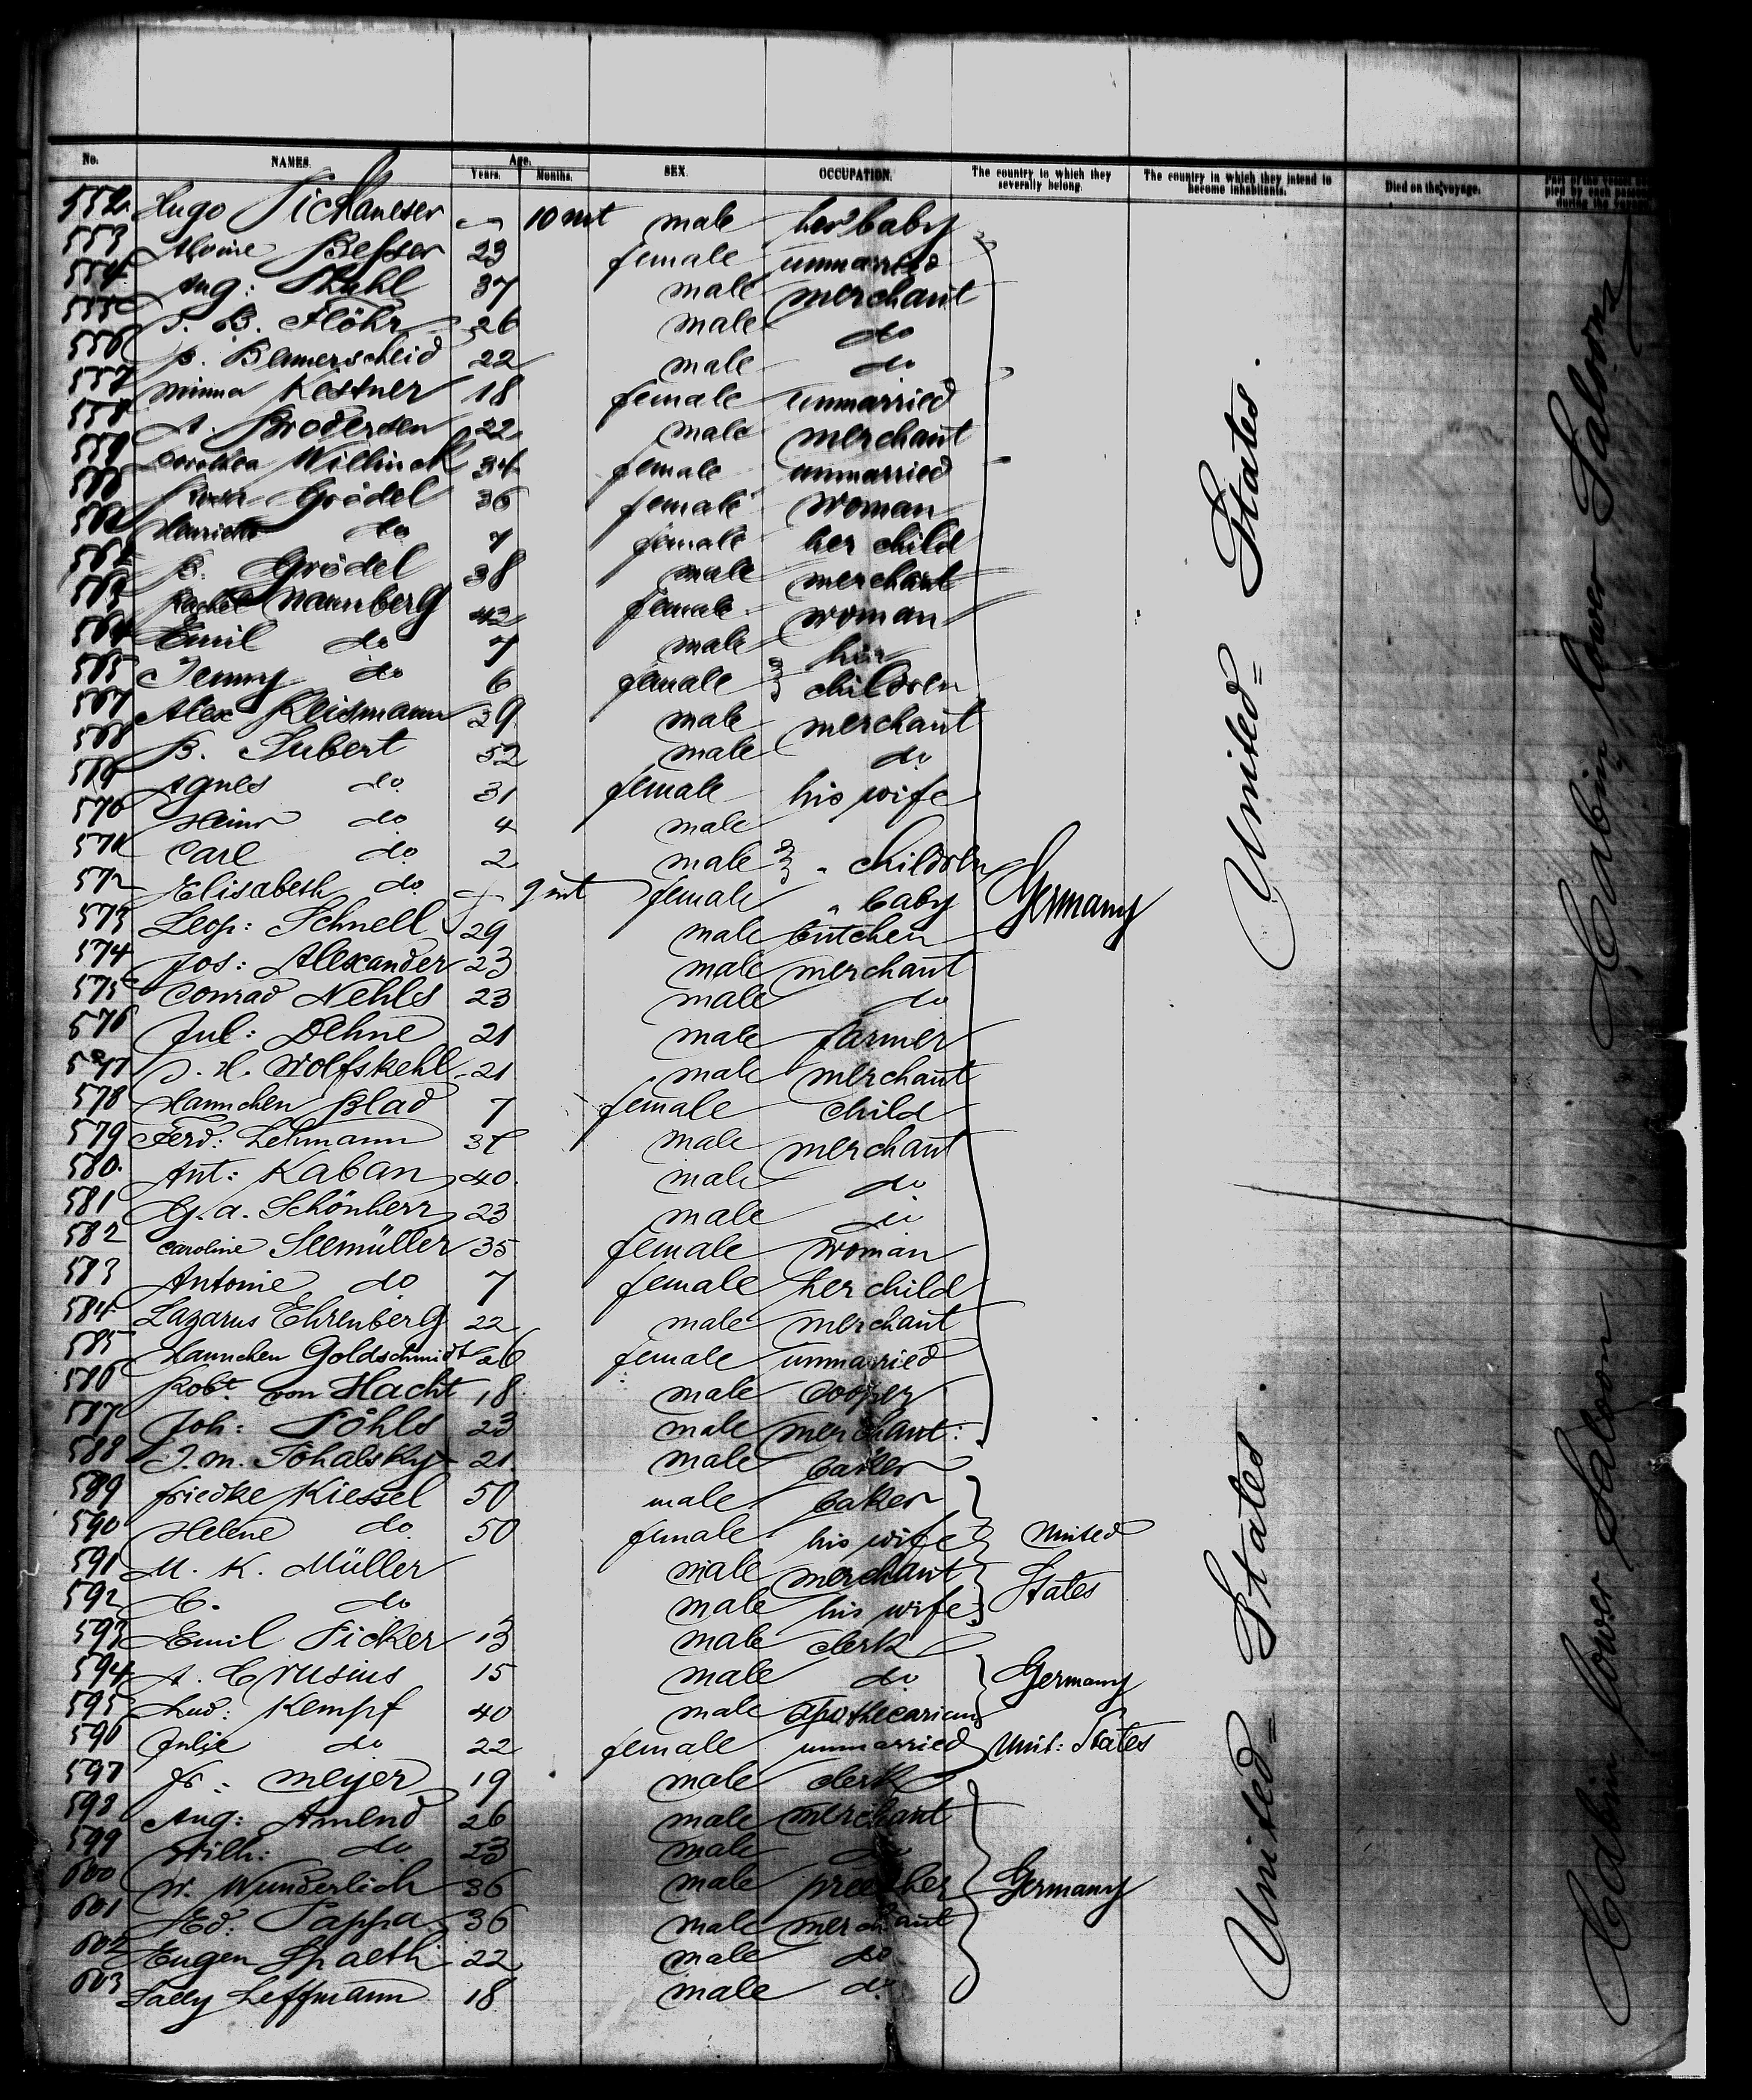 No. NAMES. Age. Years. Months. SEX. OCCUPATION. The country to which they severally belong. The country in which they intend to become inhabitants. Died on the voyage. Part of the
552 Hugo 10 mt male her baby
553 Besser 23 female unmarried
554 Aug: Stahl 37 male merchant
555 B. Flöhr 26 male do
556 22 male do
557 Minna Kestner 18 female unmarried
558 A. Brodersen 22 male merchant
559 Dorothea Willinck 34 female unmarried
Grödel 36 female woman
do 7 female her child
562 B. Grödel 38 male merchant
563 Rachel Naumberg 42 female woman
564 Emil do 7 male her
565 Jenny do 6 female children
567 Alex Kleismann 39 male merchant
568 B. Subert 52 male do
569 Agnes do 31 female his wife
570 Heinr do 4 male
571 Carl do 2 male " children
572 Elisabeth do 9 mt female " baby Germany
573 Leop: Schnell 29 male butcher
574 Jos: Alexander 23 male merchant
575 Conrad Nehls 23 male do
576 Jul: Dehne 21 male farmer
577 J. H. Wolfskehl 21 male merchant
578 Hannchen Blad 7 female child
579 Ferd: Lehmann 37 male merchant
580 Ant: Kaban 40 male do
581 G. A. Schönherr 23 male do
582 Caroline Seemüller 35 female woman
583 Antonie do 7 female her child
584 Lazarus Ehrenberg 22 male merchant
585 Hannchen Goldschmidt 26 female unmarried
586 Robt von Hacht 18 male cooper
587 Joh: Pöhls 23 male merchant:
588 J. M. 21 male
589 Friedke Kiessel 50 male baker
590 Helene do 50 female his wife United
591 M. K. Müller male merchant States
592 C. do male his wife
593 Emil Ficker 13 male clerk
594 A. Crusius 15 male do Germany
595 Lud: Kempf 40 male apothecarian
596 Julie do 22 female unmarried Unit: States
597 Fr: Meyer 19 male clerk
598 Aug: Amend 26 male merchant
599 Wilh: do 23 male do
600 W. Wunderlich 36 male preacher Germany
601 Ed: Pappa 36 male merchant
602 Eugen Spaeth 22 male do
603 Sally Leffmann 18 male do
United States.
United States
Cabin lower Saloon
Cabin lower Saloon